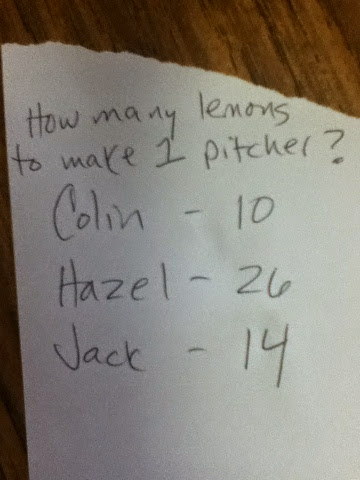 How many lemons
to make 1 pitcher?
Colin - 10
Hazel - 26
Jack - 14